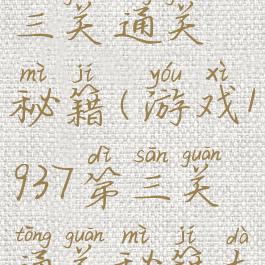 三关通关
mì jí yóu xì
秘籍(游戏1
dì sān guān
937第三关
tōng guān mì jí dà
通关秘籍大